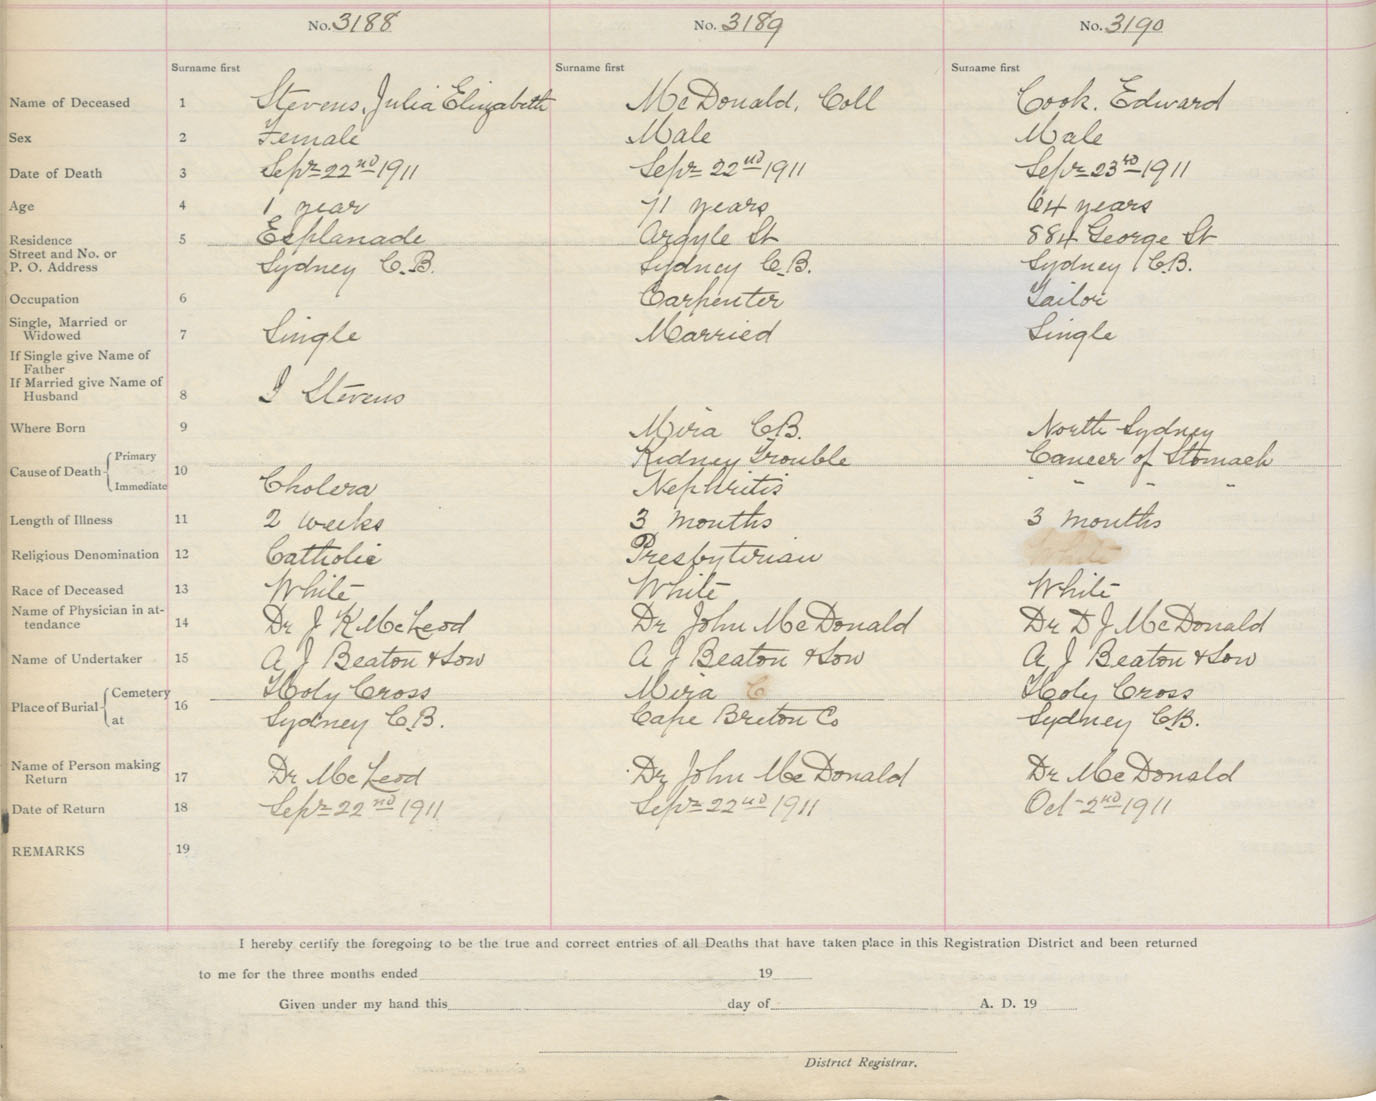 No. 3188 No. 3189 No. 3190
Surname first Surname first Surname first
Name of Deceased 1 Stevens, Julia Elizabeth McDonald, Coll Cook. Edward
Sex 2 Female Male Male
Date of Death 3 Sepr 22nd 1911 Sepr 22nd 1911 Sepr 23rd 1911
Age 4 1 year 71 years 64 years
Residence 5 Esplanade Argyle St 884 George St
Street and No. or
P. O. Address Sydney C.B. Sydney C.B. Sydney C.B.
Occupation 6 Carpenter Tailor
Single, Married or
Widowed 7 Single Married Single
If Single give Name of
Father
If Married give Name of
Husband 8 J Stevens
Where Born 9 Mira C.B. North Sydney
Cause of Death Primary 10 Kidney Trouble Cancer of Stomach
Immediate Cholera Nephritis " " " "
Length of Illness 11 2 weeks 3 months 3 months
Religious Denomination 12 Catholic Presbyterian White
Race of Deceased 13 White White White
Name of Physician in at-
tendance 14 Dr J K McLeod Dr John McDonald Dr D J McDonald
Name of Undertaker 15 A J Beaton & Son A J Beaton & Son A J Beaton & Son
Place of Burial Cemetery 16 Holy Cross Mira C Holy Cross
at Sydney C.B. Cape Breton Co Sydney C.B.
Name of Person making
Return 17 Dr McLeod Dr John McDonald Dr McDonald
Date of Return 18 Sepr 22nd 1911 Sepr 22nd 1911 Oct 2nd 1911
REMARKS 19
I hereby certify the foregoing to be the true and correct entries of all Deaths that have taken place in this Registration District and been returned
to me for the three months ended 19
Given under my hand this day of A. D. 19
District Registrar.